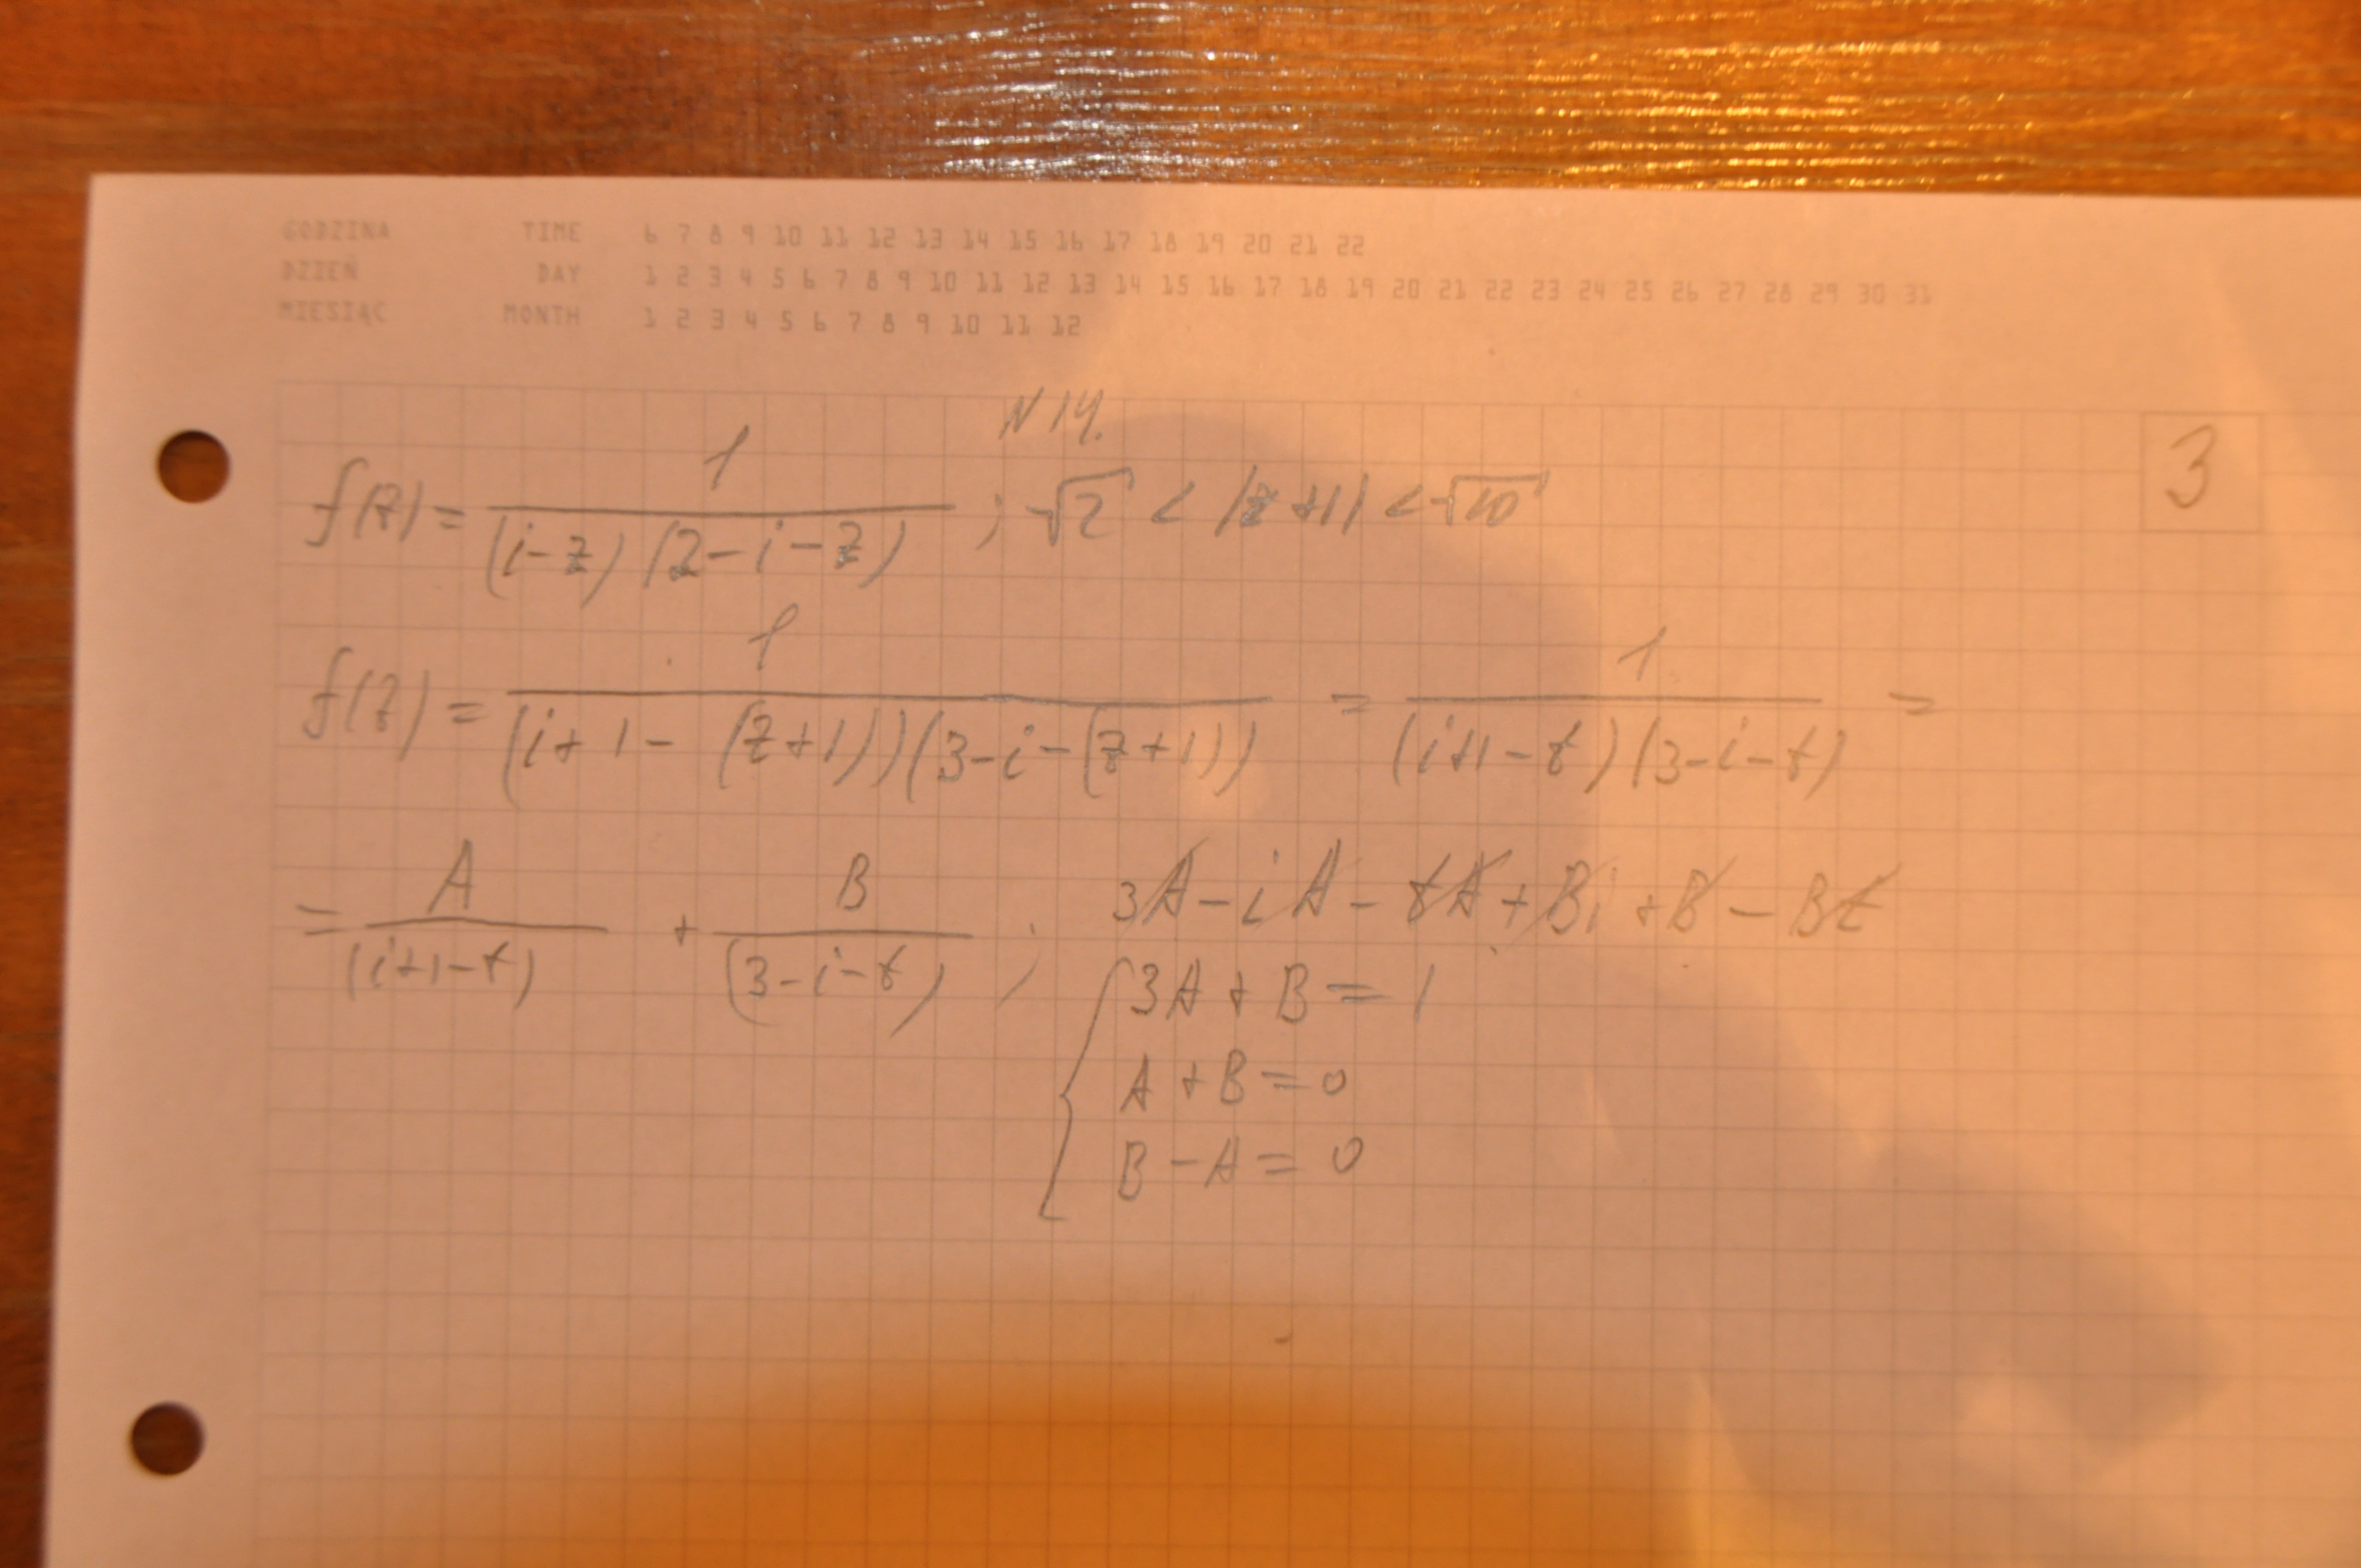 GODZINA TIME 6 7 8 9 10 11 12 13 14 15 16 17 18 19 20 21 22
DZIEŃ DAY 1 2 3 4 5 6 7 8 9 10 11 12 13 14 15 16 17 18 19 20 21 22 23 24 25 26 27 28 29 30 31
MIESIĄC MONTH 1 2 3 4 5 6 7 8 9 10 11 12
N 14.
3
f(z) = 1 / (i-z)(2-i-z) ; √2 < |z+1| < √10
f(z) = 1 / (i+1-(z+1))(3-i-(z+1)) = 1 / (i+1-t)(3-i-t) =
= A / (i+1-t) + B / (3-i-t) ; 3A - iA - tA + Bi + B - Bt
{ 3A + B = 1
A + B = 0
B - A = 0